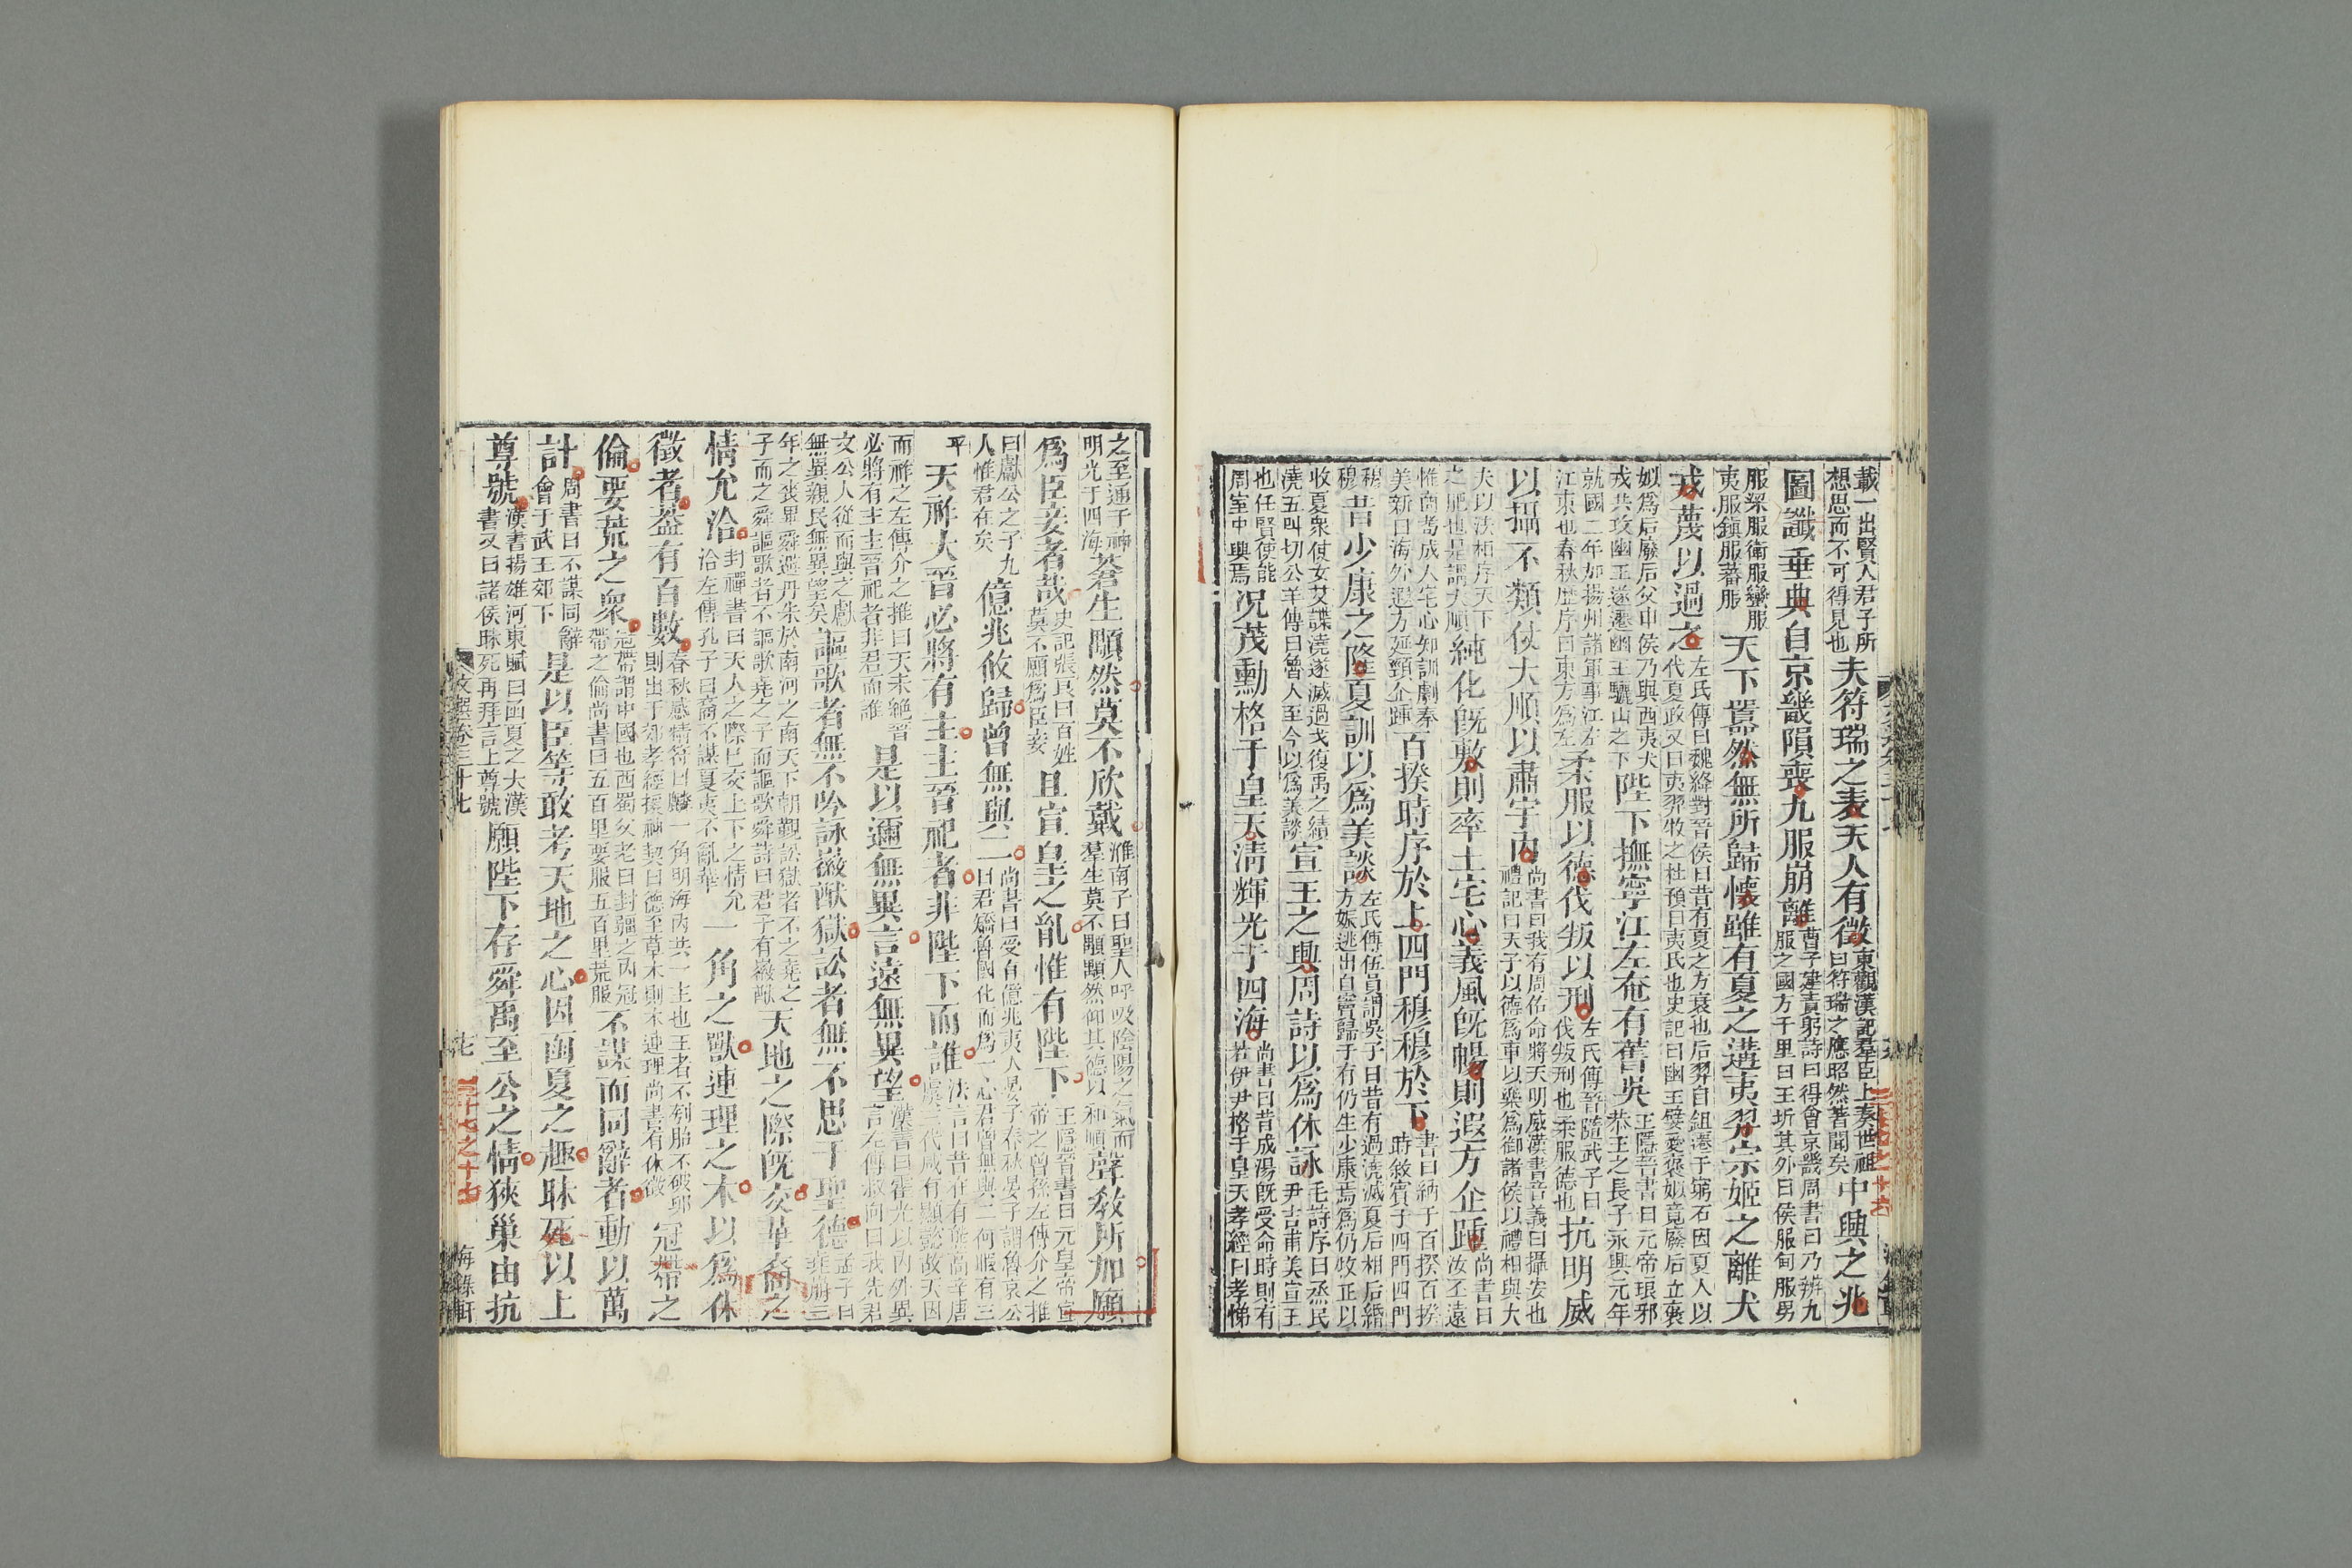 載一出賢人君子所想思而不可得見也夫符瑞之表天人有徵東觀漢記羣臣上奏世祖曰符瑞之應昭然著聞矣中興之兆
圖讖垂典自京畿隕喪九服崩離曹子建責躬詩曰得會京畿周書曰乃辨九服之國方千里曰王圻其外曰侯服甸服男
服采服衛服蠻服夷服鎮服蕃服天下囂然無所歸懷雖有夏之遘夷羿宗姬之離犬
戎蔑以過之左氏傳曰魏絳對晉侯曰昔有夏之方衰也后羿自鉏遷于窮石因夏人以代夏政又曰夷羿牧之杜預曰夷氏也史記曰幽王嬖愛褒姒竟廢后立褒
姒為后廢后父申侯乃與西夷犬戎共攻幽王遂遷幽王驪山之下陛下撫寧江左奄有舊吳王隱晉書曰元帝琅邪恭王之長子永興元年
就國二年加揚州諸軍事江左江東也春秋歷序曰東方為左柔服以德伐叛以刑左氏傳晉隨武子曰伐叛刑也柔服德也抗明威
以攝不類仗大順以肅宇內尚書曰我有周佑命將天明威漢書音義曰攝安也禮記曰天子以德為車以樂為御諸侯以禮相與大
夫以法相序天下之肥也是謂大順純化旣敷則率土宅心義風旣暢則遐方企踵尚書曰汝丕遠
惟商耇成人宅心知訓劇秦美新曰海外遐方延頸企踵百揆時序於上四門穆穆於下書曰納于百揆百揆時敘賓于四門四門
穆穆昔少康之隆夏訓以為美談左氏傳伍員謂吳子曰昔有過澆滅夏后相后緡方娠逃出自竇歸于有仍生少康焉為仍牧正以
收夏衆使女艾諜澆遂滅過戈復禹之績澆五叫切公羊傳曰魯人至今以為美談宣王之興周詩以為休詠毛詩序曰烝民尹吉甫美宣王
也任賢使能周室中興焉况茂勳格于皇天淸輝光于四海尚書曰昔成湯旣受命時則有若伊尹格于皇天孝經曰孝悌
之至通于神明光于四海蒼生顒然莫不欣戴淮南子曰聖人呼吸陰陽之氣而羣生莫不顒顒然仰其德以和順聲敎所加願
為臣妾者哉史記張良曰百姓莫不願為臣妾且宣皇之胤惟有陛下王隱晉書曰元皇帝宣帝之曾孫左傳介之推
曰獻公之子九人惟君在矣億兆攸歸曾無與二尚書曰受有億兆夷人晏子春秋晏子謂魯哀公曰君矯魯國化而為一心君曾無與二何暇有三
乎天祚大晉必將有主主晉祀者非陛下而誰法言曰昔在有熊高辛唐虞三代咸有顯懿故天因
而祚之左傳介之推曰天未絕晉必將有主主晉祀者非君而誰是以邇無異言遠無異望漢書曰霍光以內外異言左傳叔向曰我先君
文公人從而與之獻無異親民無異望矣謳歌者無不吟詠徽猷獄訟者無不思于聖德孟子曰堯崩三
年之喪畢舜避丹朱於南河之南天下朝覲訟獄者不之堯之子而之舜謳歌者不謳歌堯之子而謳歌舜詩曰君子有徽猷天地之際旣交華裔之
情允洽封禪書曰天人之際已交上下之情允洽左傳孔子曰裔不謀夏夷不亂華一角之獸連理之木以為休
徵者葢有百數春秋感精符曰麟一角明海內共一主也王者不刳胎不破卵則出于郊孝經援神契曰德至草木則木連理尚書有休徵冠帶之
倫要荒之衆冠帶謂中國也西蜀父老曰封疆之內冠帶之倫尚書曰五百里要服五百里荒服不謀而同辭者動以萬
計周書曰不謀同辭會于武王郊下是以臣等敢考天地之心因函夏之趣昧死以上
尊號漢書揚雄河東賦曰函夏之大漢書又曰諸侯昧死再拜言上尊號願陛下存舜禹至公之情狹巢由抗
文選卷三十七 十七 海錄軒
三十七之十七